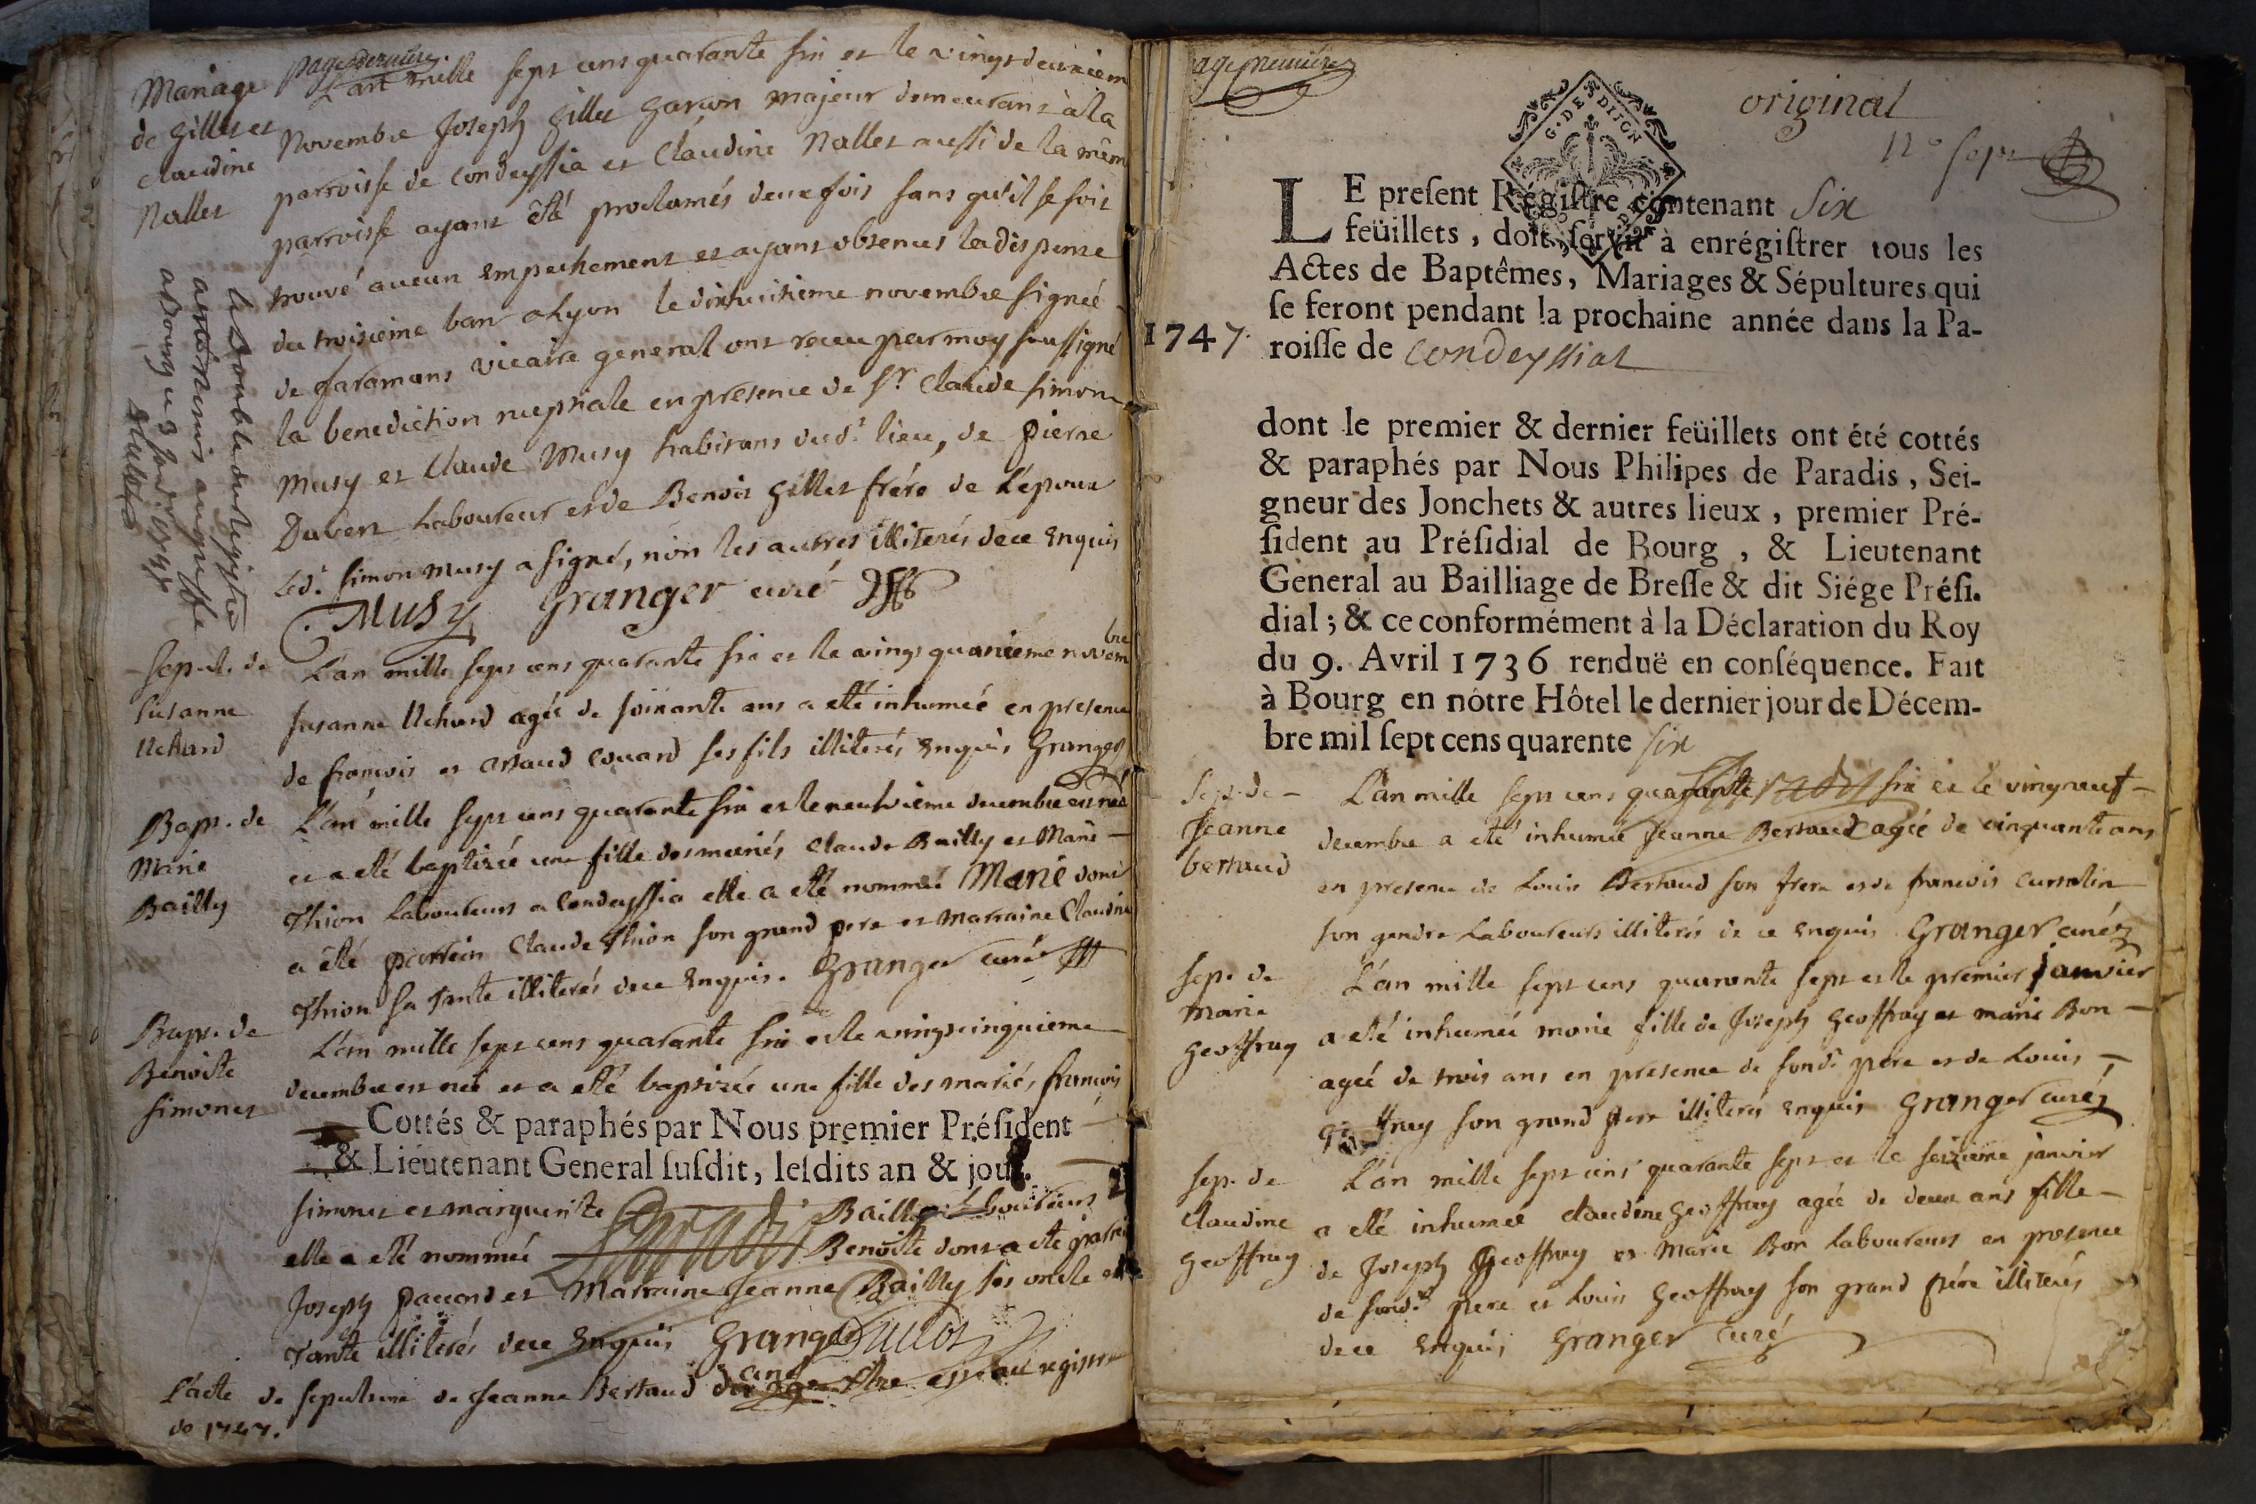 page dernière
Mariage
de Gillet et
claudine
Nallet
L'an mille sept cens quarante six et le vingt deuxiem
Novembre Joseph Gillet garçon majeur demeurant à la
parroisse de condeyssia et Claudine Nallet aussi de la mêm
parroisse ayant été proclamés deux fois sans qu'il se soit
trouvé aucun empechement et ayant obtenus la dispense
du troisième ban a Lyon le dixhuitieme novembre signée
de garamans vicaire general ont receu par moy soussigné
la benediction nuptiale en presence de Sr Claude simon
Musy et Claude Musy habitans dud. lieu, de pierre
Duvert Laboureur et de Benoit Gillet frére de L'epoux
Led. simon musy a signé, nòn les autres illiterés de ce enquis
Musy Granger curé
le double du registre
a été remis au greffe
a Bourg le 3 janv. 1747
Sep.re de
susanne
Uchard
L'an mille sept cens quarante six et le vingt quatrième novem
bre
susanne Uchard agée de soixante ans a eté inhumée en presence
de françois et Arnaud couard ses fils illiterés enquis Granger
Bapt. de
Marie
Bailly
L'an mille sept cens quarante six et le neufvieme decembre est née
et a eté baptisée une fille des mariés claude Bailly et Marie
Thion Laboureurs a Condeyssia elle a eté nommée Marie dont
a été parrein Claude Thion son grand pere et marraine Claudine
Thion sa tante illiterés de ce enquis. Granger curé
Bapt. de
Benoite
simonet
L'an mille sept cens quarante six et le vingt cinquieme
decembre est née et a eté baptisée une fille des mariés françois
Cottés & paraphés par Nous premier Président
& Lieutenant General susdit, lesdits an & jour.
simonet et marguerite Bailly Laboureurs
elle a eté nommée Benoîte dont a eté parrei
Joseph pacond et Marraine Jeanne Bailly ses oncle et
Tante illiterés de ce enquis Granger
curé
L'acte de sepulture de Jeanne Bertaud est au registre
de 1747.
page premiere
original
n.o sept
G. DE DIJON
LE present Régistre contenant six
feüillets, doit servir à enrégistrer tous les
Actes de Baptêmes, Mariages & Sépultures qui
se feront pendant la prochaine année dans la Pa-
1747.
roisse de condeyssiat
dont le premier & dernier feüillets ont été cottés
& paraphés par Nous Philipes de Paradis, Sei-
gneur des Jonchets & autres lieux, premier Pré-
sident au Présidial de Bourg, & Lieutenant
General au Bailliage de Bresse & dit Siége Prési-
dial; & ce conformément à la Déclaration du Roy
du 9. Avril 1736 renduë en conséquence. Fait
à Bourg en nôtre Hôtel le dernier jour de Décem-
bre mil sept cens quarente six
Sep. de
Jeanne
bertaud
L'an mille sept cens quarante six et le vingt neuf
decembre a eté inhumée Jeanne Bertaud agée de cinquante ans
en presence de Louis Bertaud son frere et de francois curtelin
son gendre Laboureurs illiterés de ce enquis Granger curé
Sep. de
marie
geoffray
L'an mille sept cens quarante sept et le premier janvier
a eté inhumée marie fille de Joseph Geoffray et marie Bon
agée de trois ans en presence de sond. pere et de Louis
geoffray son grand pere illiterés enquis Granger curé
Sep. de
claudine
geoffray
L'an mille sept cens quarante sept et le seizieme janvier
a eté inhumée claudine geoffray agée de deux ans fille
de Joseph Geoffray et Marie Bon Laboureurs en presence
de sond. pere et Louis Geoffray son grand pére illiterés
de ce enquis Granger curé